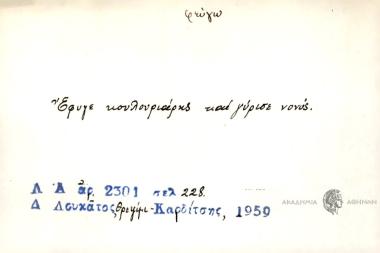 φεύγω
Ἔφυγε κουλουριάρης καὶ γύρισε νονός.
Λ Α ἀρ. 2301 σελ 228.
Δ Λουκᾶτος, Καρδίτσης, 1959
ΑΚΑΔΗΜΙΑ ΑΘΗΝΩΝ